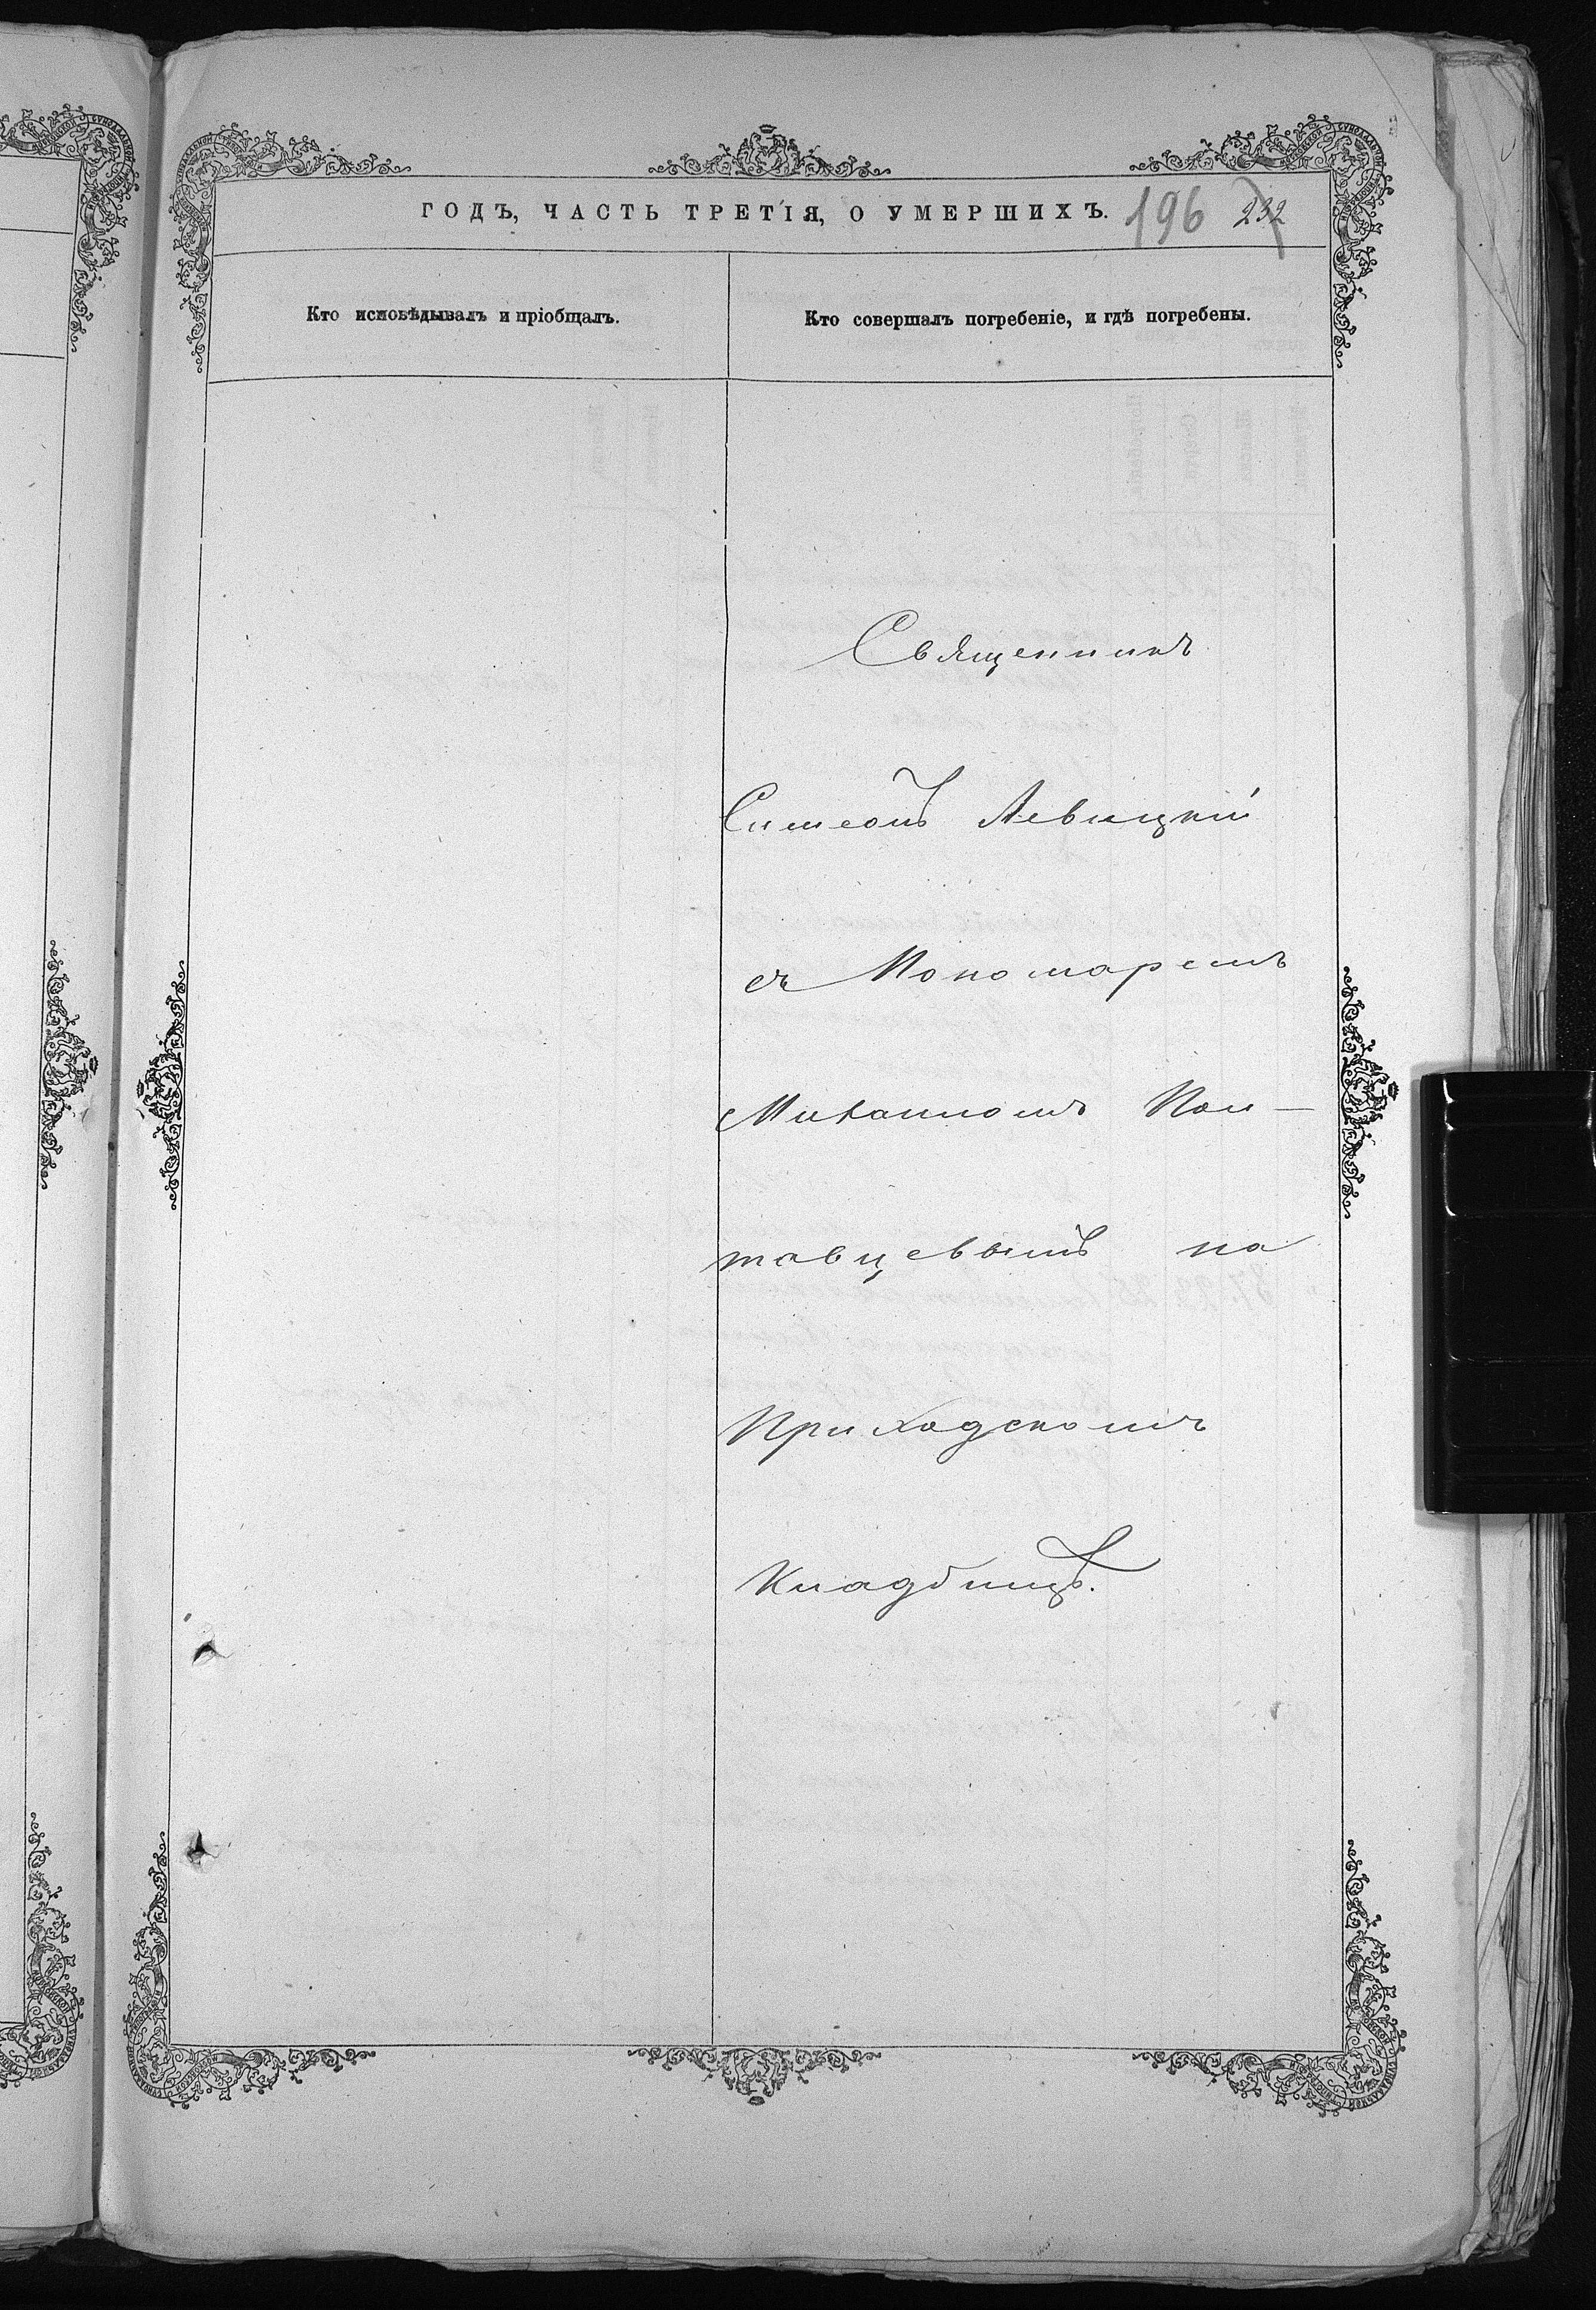 ГОДЪ, ЧАСТЬ ТРЕТІЯ, О УМЕРШИХЪ. 196 232
Кто исповѣдывалъ и пріобщалъ.
Кто совершалъ погребеніе, и гдѣ погребены.
Священникъ
Симеонъ Левицкій
съ Пономаремъ
Михаиломъ Пол-
тавцевымъ на
Приходскомъ
Кладбищѣ.